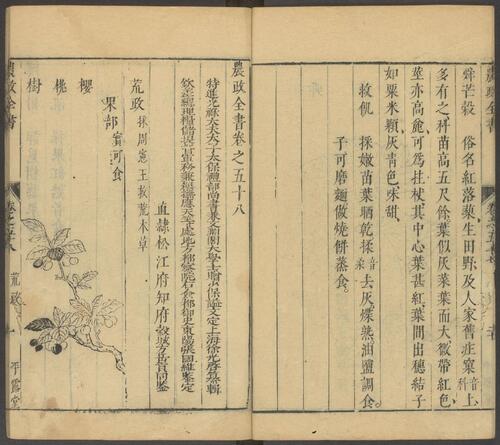 農政全書
舜芒穀　俗名紅落藜生田野及人家舊庄窠音科上
多有之科苗高五尺餘葉似灰菜葉而大微帶紅色
莖亦高麄可為拄杖其中心葉甚紅葉間出穗結子
如粟米顆灰青色味甜
救飢　採嫩苗葉晒乾揉音柔去灰煠熟油鹽調食
子可磨麵做燒餅蒸食
農政全書卷之五十八
特進光祿大夫太子太保禮部尚書兼文淵閣大學士贈少保諡文定上海徐光啓纂輯
欽差總理糧儲提督軍務兼巡撫應天等處地方都察院右僉都御史東陽張國維鑒定
直隸松江府知府穀城方岳貢同鑒
荒政　採周憲王救荒本草
果部　實可食
櫻桃樹
農政全書
卷之五十八
荒政
一
平露堂